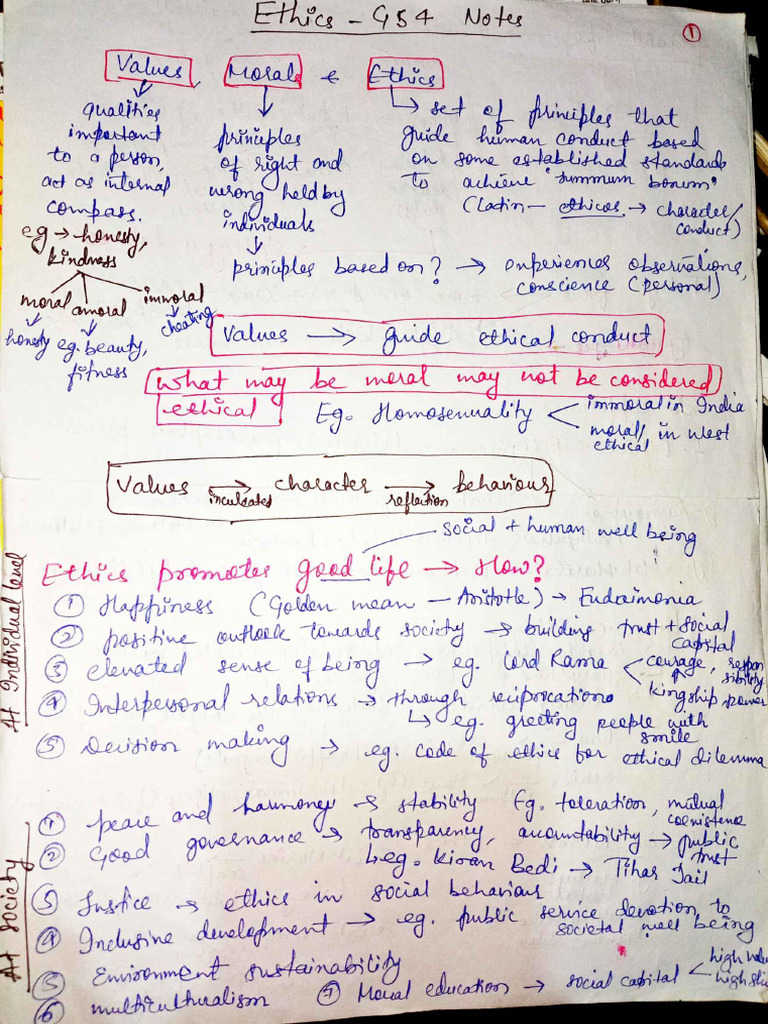 Ethics - GS4 Notes
1
Values, Morals & Ethics
qualities
important
to a person,
act as internal
compass.
eg → honesty,
kindness
moral amoral immoral
honesty eg. beauty,
fitness
cheating
principles
of right and
wrong held by
individuals
principles based on? → experiences observations,
conscience (personal)
set of principles that
guide human conduct based
on some established standards
to achieve "summum bonum"
(Latin - ethicos → character/
conduct)
Values → guide ethical conduct
What may be moral may not be considered
ethical
Eg. Homosexuality
immoral in India
moral/ in west
ethical
Values → character → behaviour
inculcated reflection
social + human well being
At Individual level
Ethics promotes good life → How?
① Happiness (Golden mean - Aristotle) → Eudaimonia
② positive outlook towards society → building trust + social
capital
③ elevated sense of being → eg. Lord Rama
courage, respon
sibility
kingship power
④ Interpersonal relations → through reciprocation
eg. greeting people with
smile
⑤ Decision making → eg. code of ethics for ethical dilemma
At society
① peace and harmoney → stability Eg. toleration, mutual
coexistence
② Good governance → transparency, accountability → public
trust
eg. Kiran Bedi → Tihar Jail
③ Justice → ethics in social behaviour
④ Inclusive development → eg. public service devotion to
societal well being
⑤ Environment sustainability
⑥ multiculturalism ⑦ Moral education → social capital
high
high